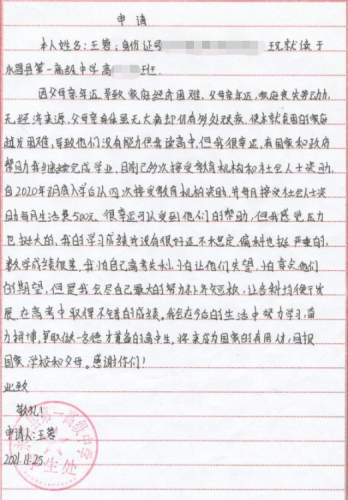 申请
本人姓名:王蓉,身份证号 现就读于
永昌县第一高级中学高 班.
因父母年迈,导致家庭经济困难,父母年迈,家庭丧失劳动力,
无经济来源,父母身体虽无大病却仍有多处残疾,使本就贫困的家庭
越发困难,导致他们没有能力供我读高中,但我很幸运,有国家和政府
帮助我继续完成学业,目前已多次接受教育机构和社会人士资助,
自2020年8月底入学自从四次接受教育机构资助,并每月接受社会人士资
助每月生活费500元.很幸运可以受到他们的帮助,但我感觉压力
也挺大的,我的学习成绩并没有很好还不太稳定,偏科也挺严重的,
数学成绩很差,我怕自己高考失利,怕让他们失望,怕辜负他们
的期望,但是我会尽自己最大的努力补短板,让各科均衡发
展,在高考中取得不错的成绩。我会在今后的生活中努力学习,奋
力拼搏,争取做一名德才兼备的高中生,将来成为国家的有用人才,回报
国家、学校和父母。感谢你们!
此致
敬礼!
申请人:王蓉
2021.11.25
第一高级中学
学生处